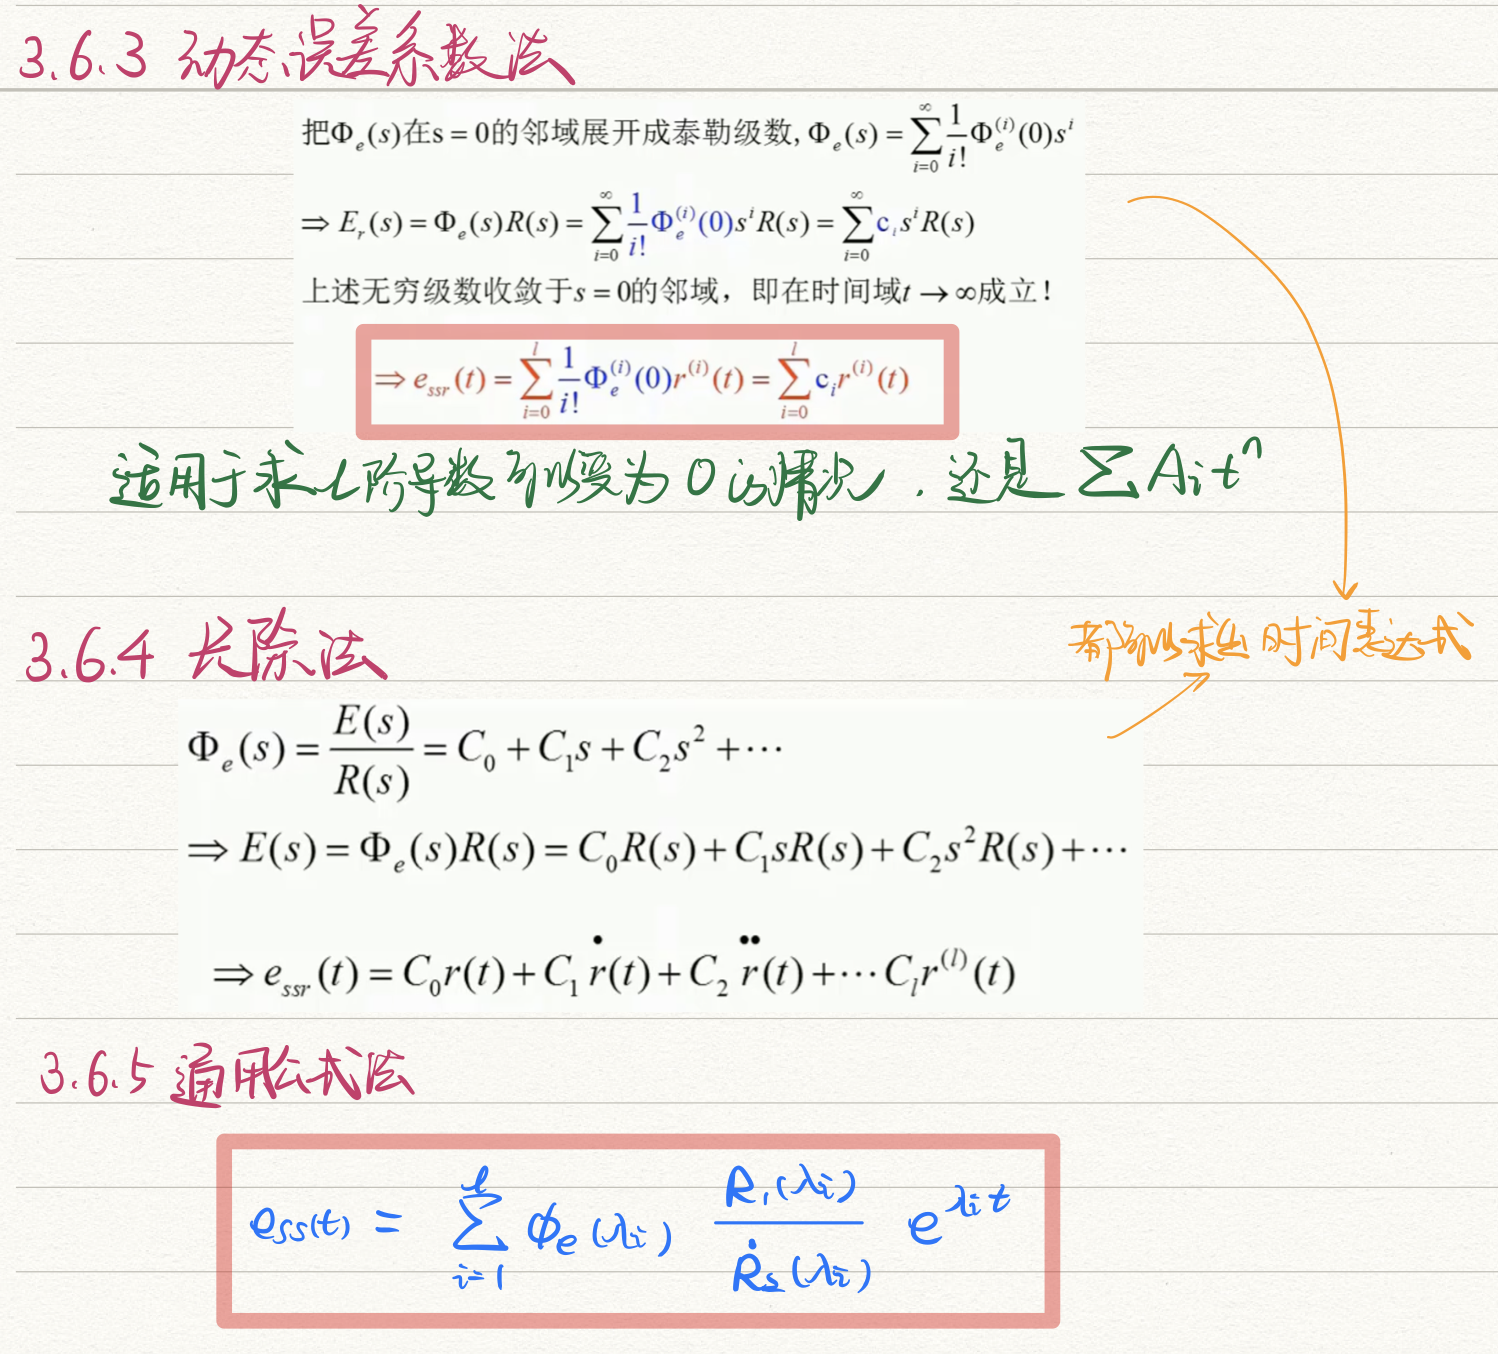 3.6.3 动态误差系数法
把Φₑ(s)在s = 0的邻域展开成泰勒级数, Φₑ(s) = ∑_{i=0}^{∞} \frac{1}{i!} Φₑ^{(i)}(0)s^i
⇒ E_r(s) = Φₑ(s)R(s) = ∑_{i=0}^{∞} \frac{1}{i!} Φₑ^{(i)}(0)s^i R(s) = ∑_{i=0}^{∞} c_i s^i R(s)
上述无穷级数收敛于s = 0的邻域，即在时间域t → ∞成立！
⇒ e_{ssr}(t) = ∑_{i=0}^{l} \frac{1}{i!} Φₑ^{(i)}(0)r^{(i)}(t) = ∑_{i=0}^{l} c_i r^{(i)}(t)
适用于求L阶导数可以变为0的情况，还是 ∑ A_i t^n
都可以求出时间表达式
3.6.4 长除法
Φₑ(s) = \frac{E(s)}{R(s)} = C_0 + C_1 s + C_2 s^2 + ⋯
⇒ E(s) = Φₑ(s)R(s) = C_0 R(s) + C_1 sR(s) + C_2 s^2 R(s) + ⋯
⇒ e_{ssr}(t) = C_0 r(t) + C_1 \dot{r}(t) + C_2 \ddot{r}(t) + ⋯ C_l r^{(l)}(t)
3.6.5 通用公式法
e_{ss}(t) = ∑_{i=1}^{l} ϕ_e(λ_i) \frac{R_1(λ_i)}{\dot{R}_2(λ_i)} e^{λ_i t}